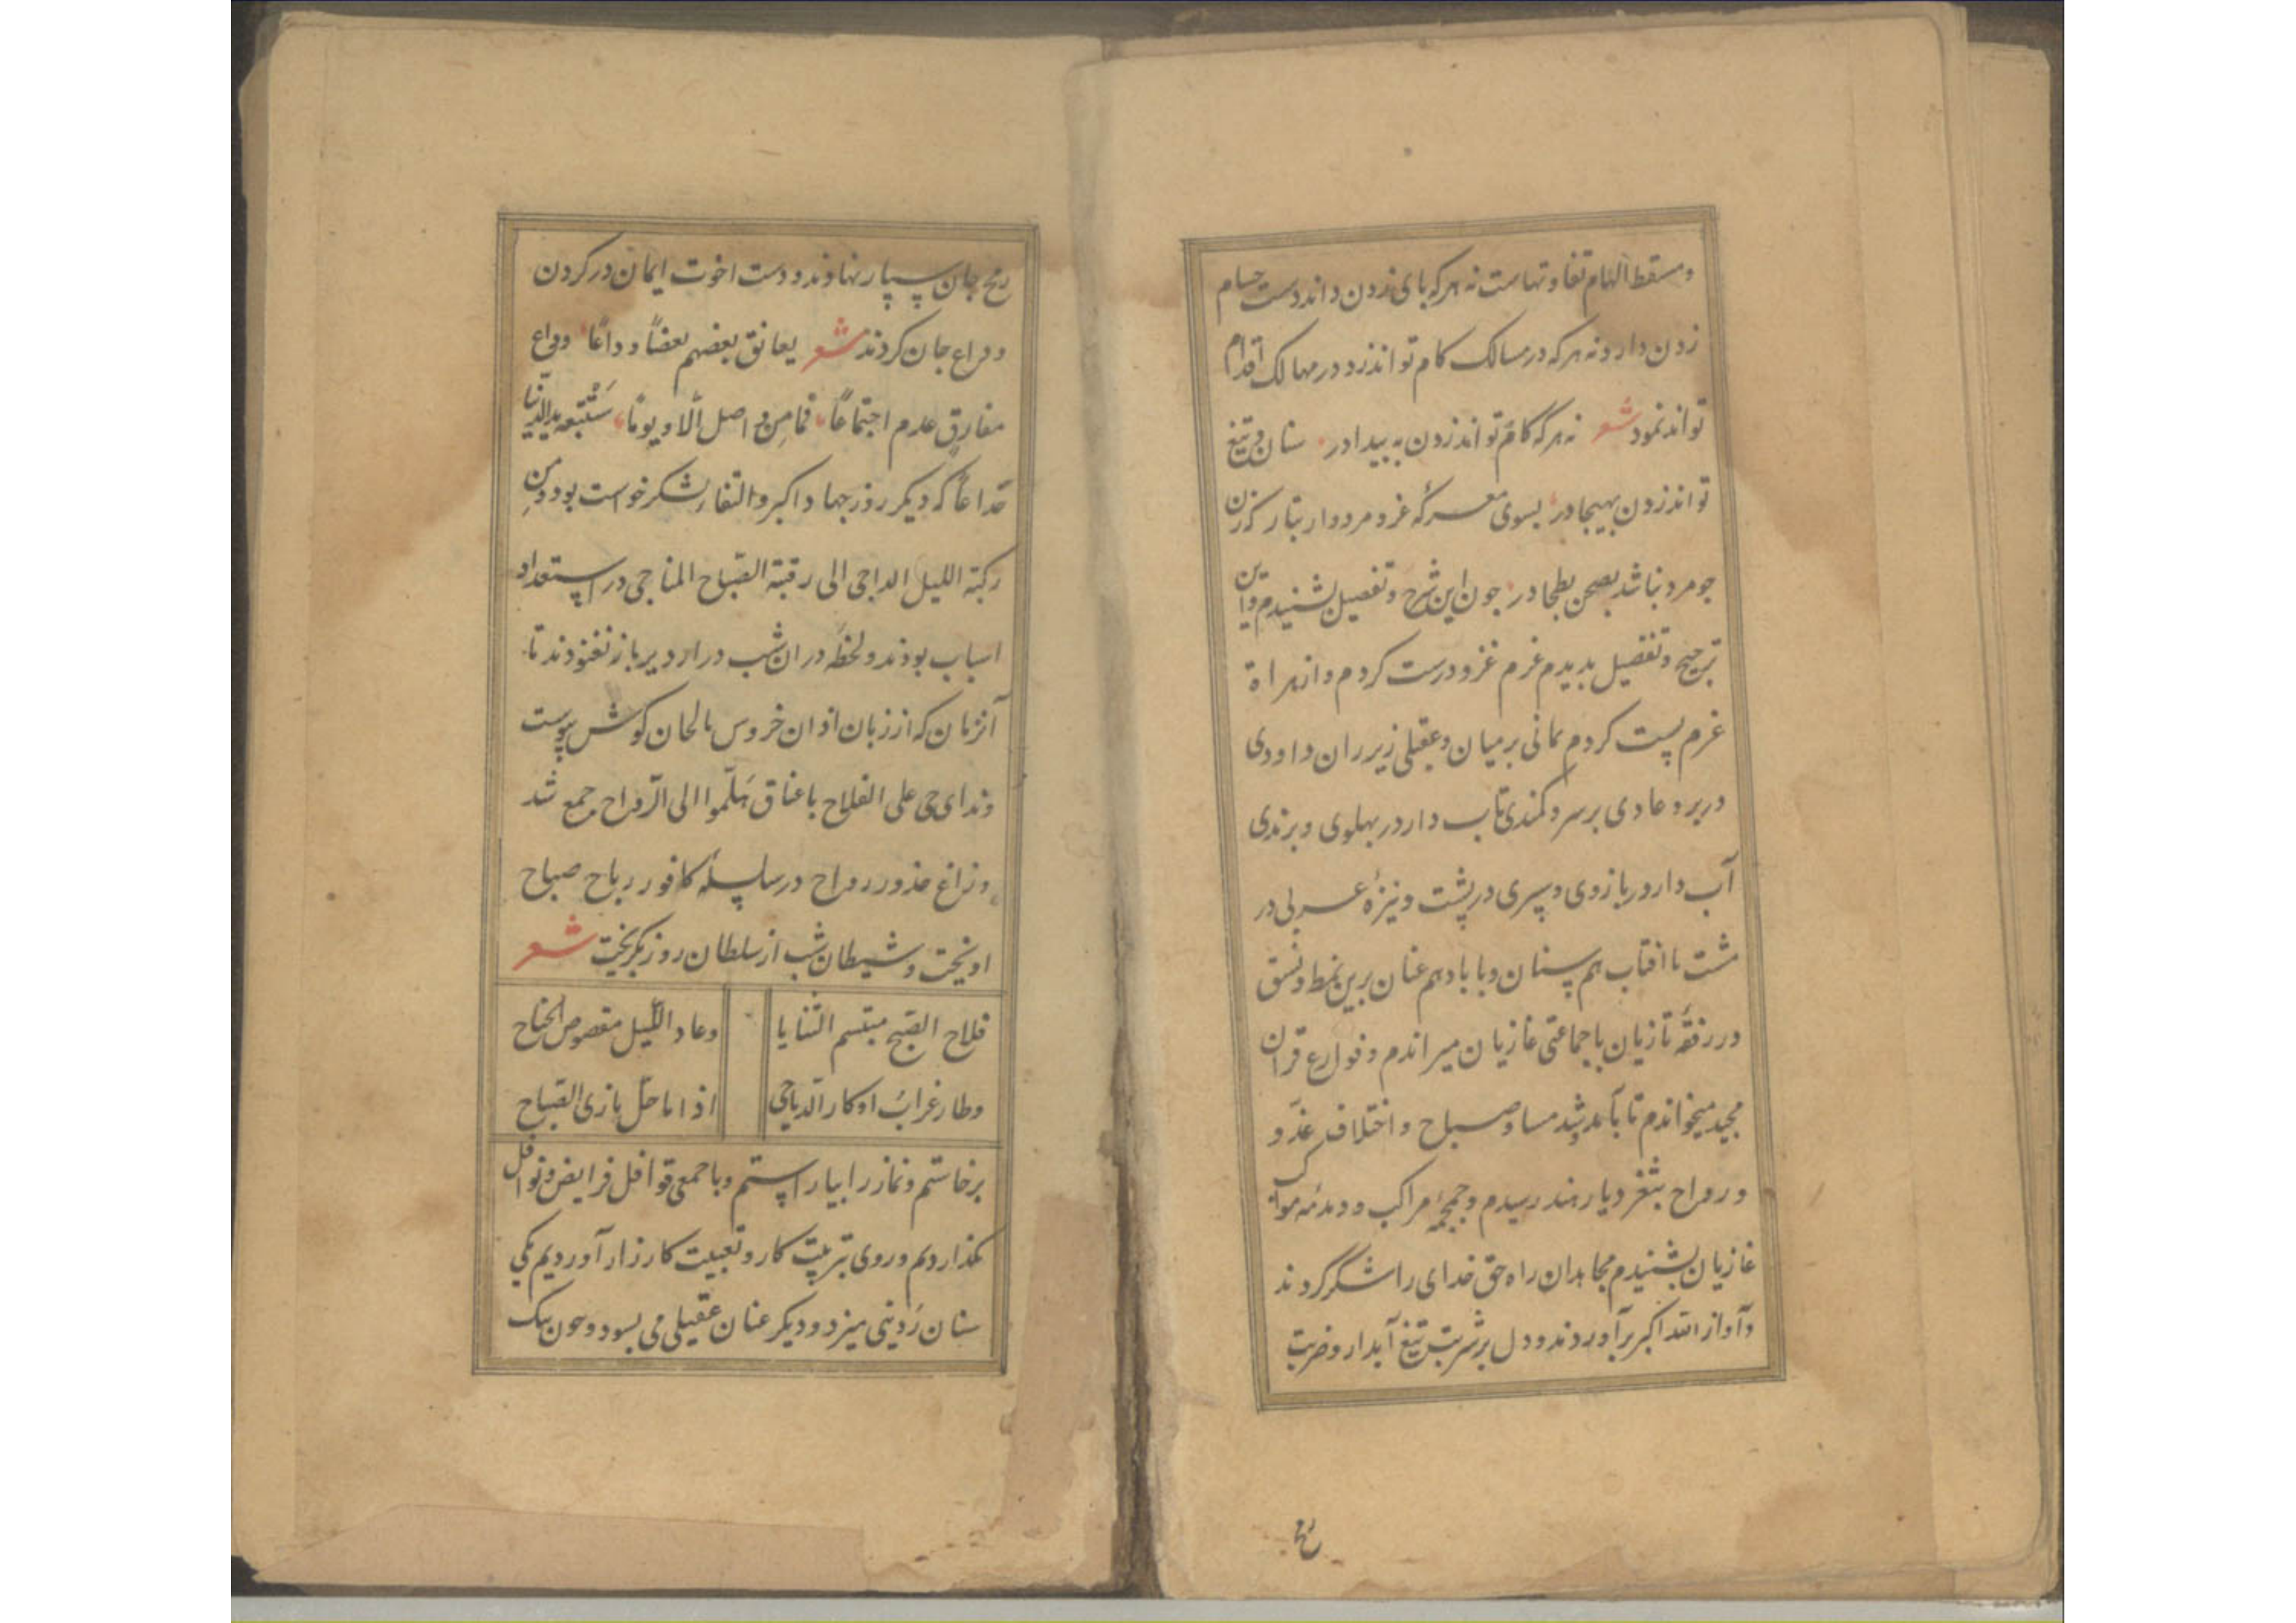 و مسقط الهام تفاوتهاست نه هر که بای زدن داند دست حسام
زدن دارد و نه هر که در مسالک کام تواند زد در مهالک اقدام
تواند نمود شعر نه هر که کام تواند زدن به بیدا در سنان و تیغ
تواند زدن بهیجا در بسوی معرکه غزو مردوار بتاز که زن
جو مرد نباشد بصحن بطحا در جون این شرح و تفصیل بشنیدم و این
ترجیح و تفضیل بدیدم عزم غزو درست کردم و از هراة
عزم پست کردم یمانی بر میان و عقیلی زیر ران و داودی
در بر و عادی بر سر و کمندی تاب دار در پهلوی و پرندی
آب دار در بازوی و سپری در پشت و نیزهٔ عربی در
مشت با افتاب هم سنان و با باد هم عنان برین نمط و نسق
در رفقهٔ تازیان با جماعتی غازیان میراندم و قوارع قران
مجید میخواندم تا بآمد و شد مسا و صباح و اختلاف غدو
و رواح بثغر دیار هند رسیدم و حمحمهٔ مراکب و دمدمهٔ مواکب
غازیان بشنیدم مجاهدان راه حق خدای را شکر کردند
و آواز الله اکبر برآوردند و دل بر شربت تیغ آبدار و ضربت
رمح
رمح جان سپار نهادند و دست اخوت ایمان در کردن
وداع جان کردند شعر یعانق بعضهم بعضا وداعًا وداع
مفارق عدم اجتماعًا فما مِن واصل الّا و یومًا ستتبعه ید الدنیا
که دیکر روز جهاد اکبر و التقاء لشکر خواست بود و من
رکبة اللیل الداجی الی رقبة الصباح المناجی در استعداد
اسباب بودند و لحظهٔ دران شب دراز دیرباز نغنودند تا
آنزمان که از زبان اذان خروس بالحان کوش پیوست
و ندای حی علی الفلاح باعناق هَلمّوا الی الرّواح جمع شد
و زاغ رواح در سلسلهٔ کافور ریاح صباح
اویخت و شیطان شب از سلطان روز بکریخت شعر
فلاح الصبح مبتسم الثنایا وعاد اللّیل مقصوص الجناح
وطار غرابُ اوکار الدیاجی اذا ما حلّ بازی الصباح
برخاستم و نماز را بیاراستم و با جمعی قوافل فرایض و نوافل
بکذاردیم و روی بترتیب کار و تعبیت کارزار آوردیم یکی
سنان رُدینی میزد و دیکر عنان عقیلی می بسود و چون یک